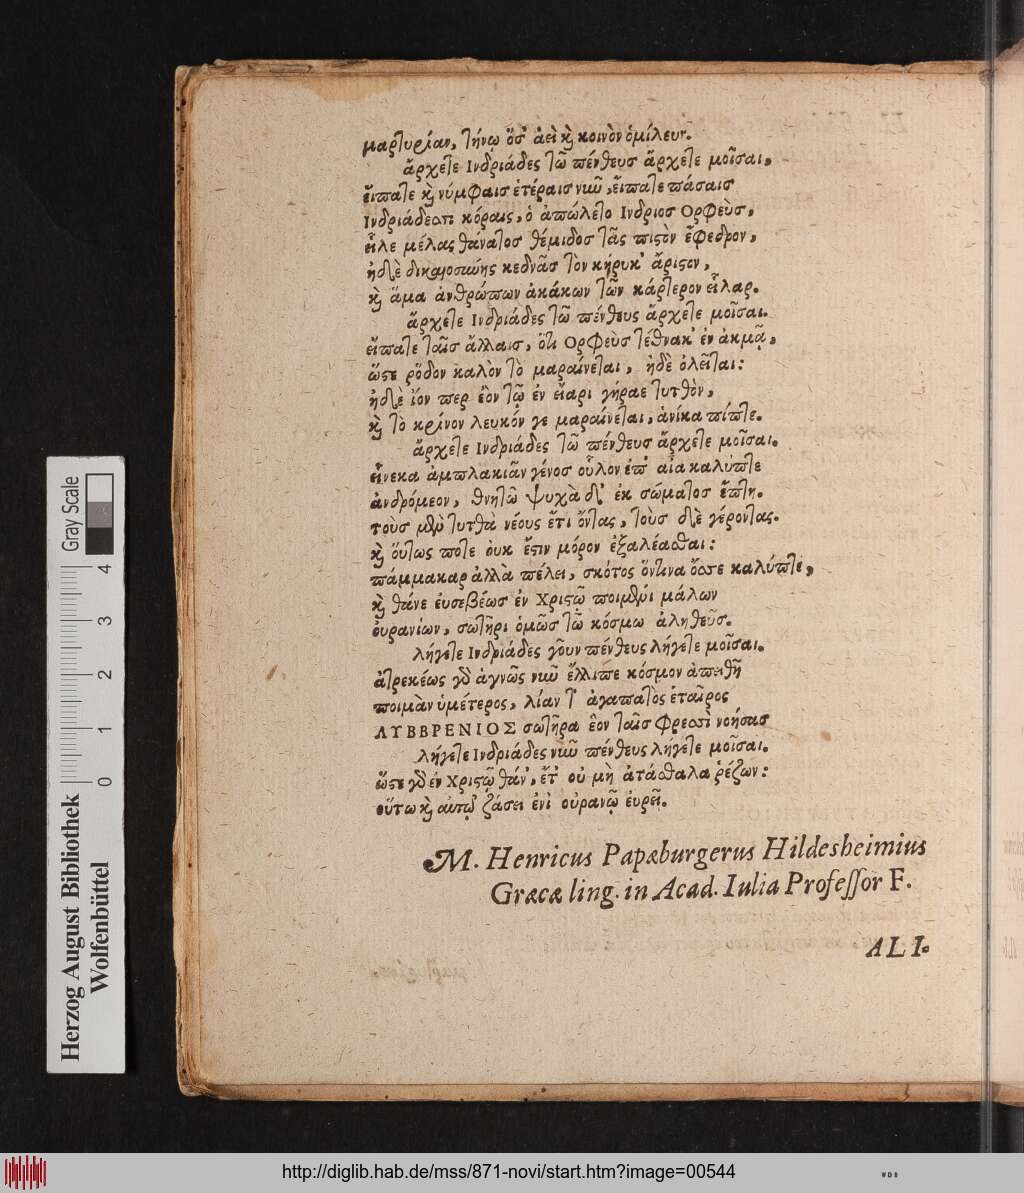 μαρτυρίαν, τήνῳ ὅσ' ἀεὶ καὶ κοινὸν ὁμίλευν.
ἄρχετε Ινδριάδες τῶ πένθευς ἄρχετε μοῖσαι,
εἴπατε καὶ νύμφαισ ἑτέραισ νιῦ, εἴπατε πάσαισ
Ινδριάδεσσι κόραις, ὁ ἀπώλετο Ινδριοσ Ορφεὺς,
εἷλε μέλας θάνατοσ θέμιδοσ τᾶς πιστὸν ἔφεδρον,
ἠδὲ δικαιοσύνης κεδνᾶσ τὸν κήρυκ' ἄριστον,
καὶ ἅμα ἀνθρώπων ἀκάκων τῶν κάρτερον εἶλαρ.
ἄρχετε Ινδριάδες τῶ πένθευς ἄρχετε μοῖσαι.
εἴπατε ταῖσ ἄλλαισ, ὅτι Ορφεὺσ τέθνακ' ἐν ἀκμᾷ,
ὥστε ῥόδον καλὸν τὸ μαραίνεται, ἠδὲ ὀλεῖται:
ἠδὲ ἴον περ ἐὸν τῷ ἐν εἴαρι γήραε τυτθὸν,
καὶ τὸ κρίνον λευκόν γε μαραίνεται, ἁνίκα πίπτε.
ἄρχετε Ινδριάδες τῶ πένθευσ ἄρχετε μοῖσαι.
εἵνεκα ἀμπλακιᾶν γένοσ οὖλον ἐπ' αἶα καλύπτε
ἀνδρόμεον, θνητῶ ψυχὰ δ' ἐκ σώματοσ ἔπτη.
τοὺσ μὲν τυτθὰ νέους ἔτι ὄντας, τοὺσ δὲ γέροντας.
καὶ ὅυτως ποτε ὀυκ ἔστιν μόρον ἐξαλέασθαι:
πάμμακαρ ἀλλὰ πέλει, σκότος ὅντινα ὄσσε καλύπτε,
καὶ θάνε ἐυσεβέωσ ἐν Χριστῷ ποιμένι μάλων
ὀυρανίων, σωτῆρι ὁμῶσ τῶ κόσμω ἀληθεῦσ.
λήγετε Ινδριάδες γοῦν πένθευς λήγετε μοῖσαι.
ἀτρεκέως γὰρ ἁγνῶς νιῦ ἔλλιπε κόσμον ἀπειθῆ
ποιμὰν ὑμέτερος, λίαν τ' ἀγαπατὸς ἑταῖρος
ΛΥΒΒΡΕΝΙΟΣ σωτῆρα ἐὸν ταῖσ φρεσσὶ νοήσας
λήγετε Ινδριάδες νιῦ πένθευς λήγετε μοῖσαι.
ὥστε γὰρ ἐν Χριστῷ θάν', ἔτ' οὐ μὴ ἀτάσθαλα ῥέζων:
οὕτω καὶ αὐτῷ ζάσει ἐνὶ οὐρανῷ ἐυρεῖ.
M. Henricus Papæburgerus Hildesheimius
Græcæ ling. in Acad. Iulia Professor F.
ALI-
Herzog August Bibliothek
Wolfenbüttel
Gray Scale
0 1 2 3 4
http://diglib.hab.de/mss/871-novi/start.htm?image=00544
WDB